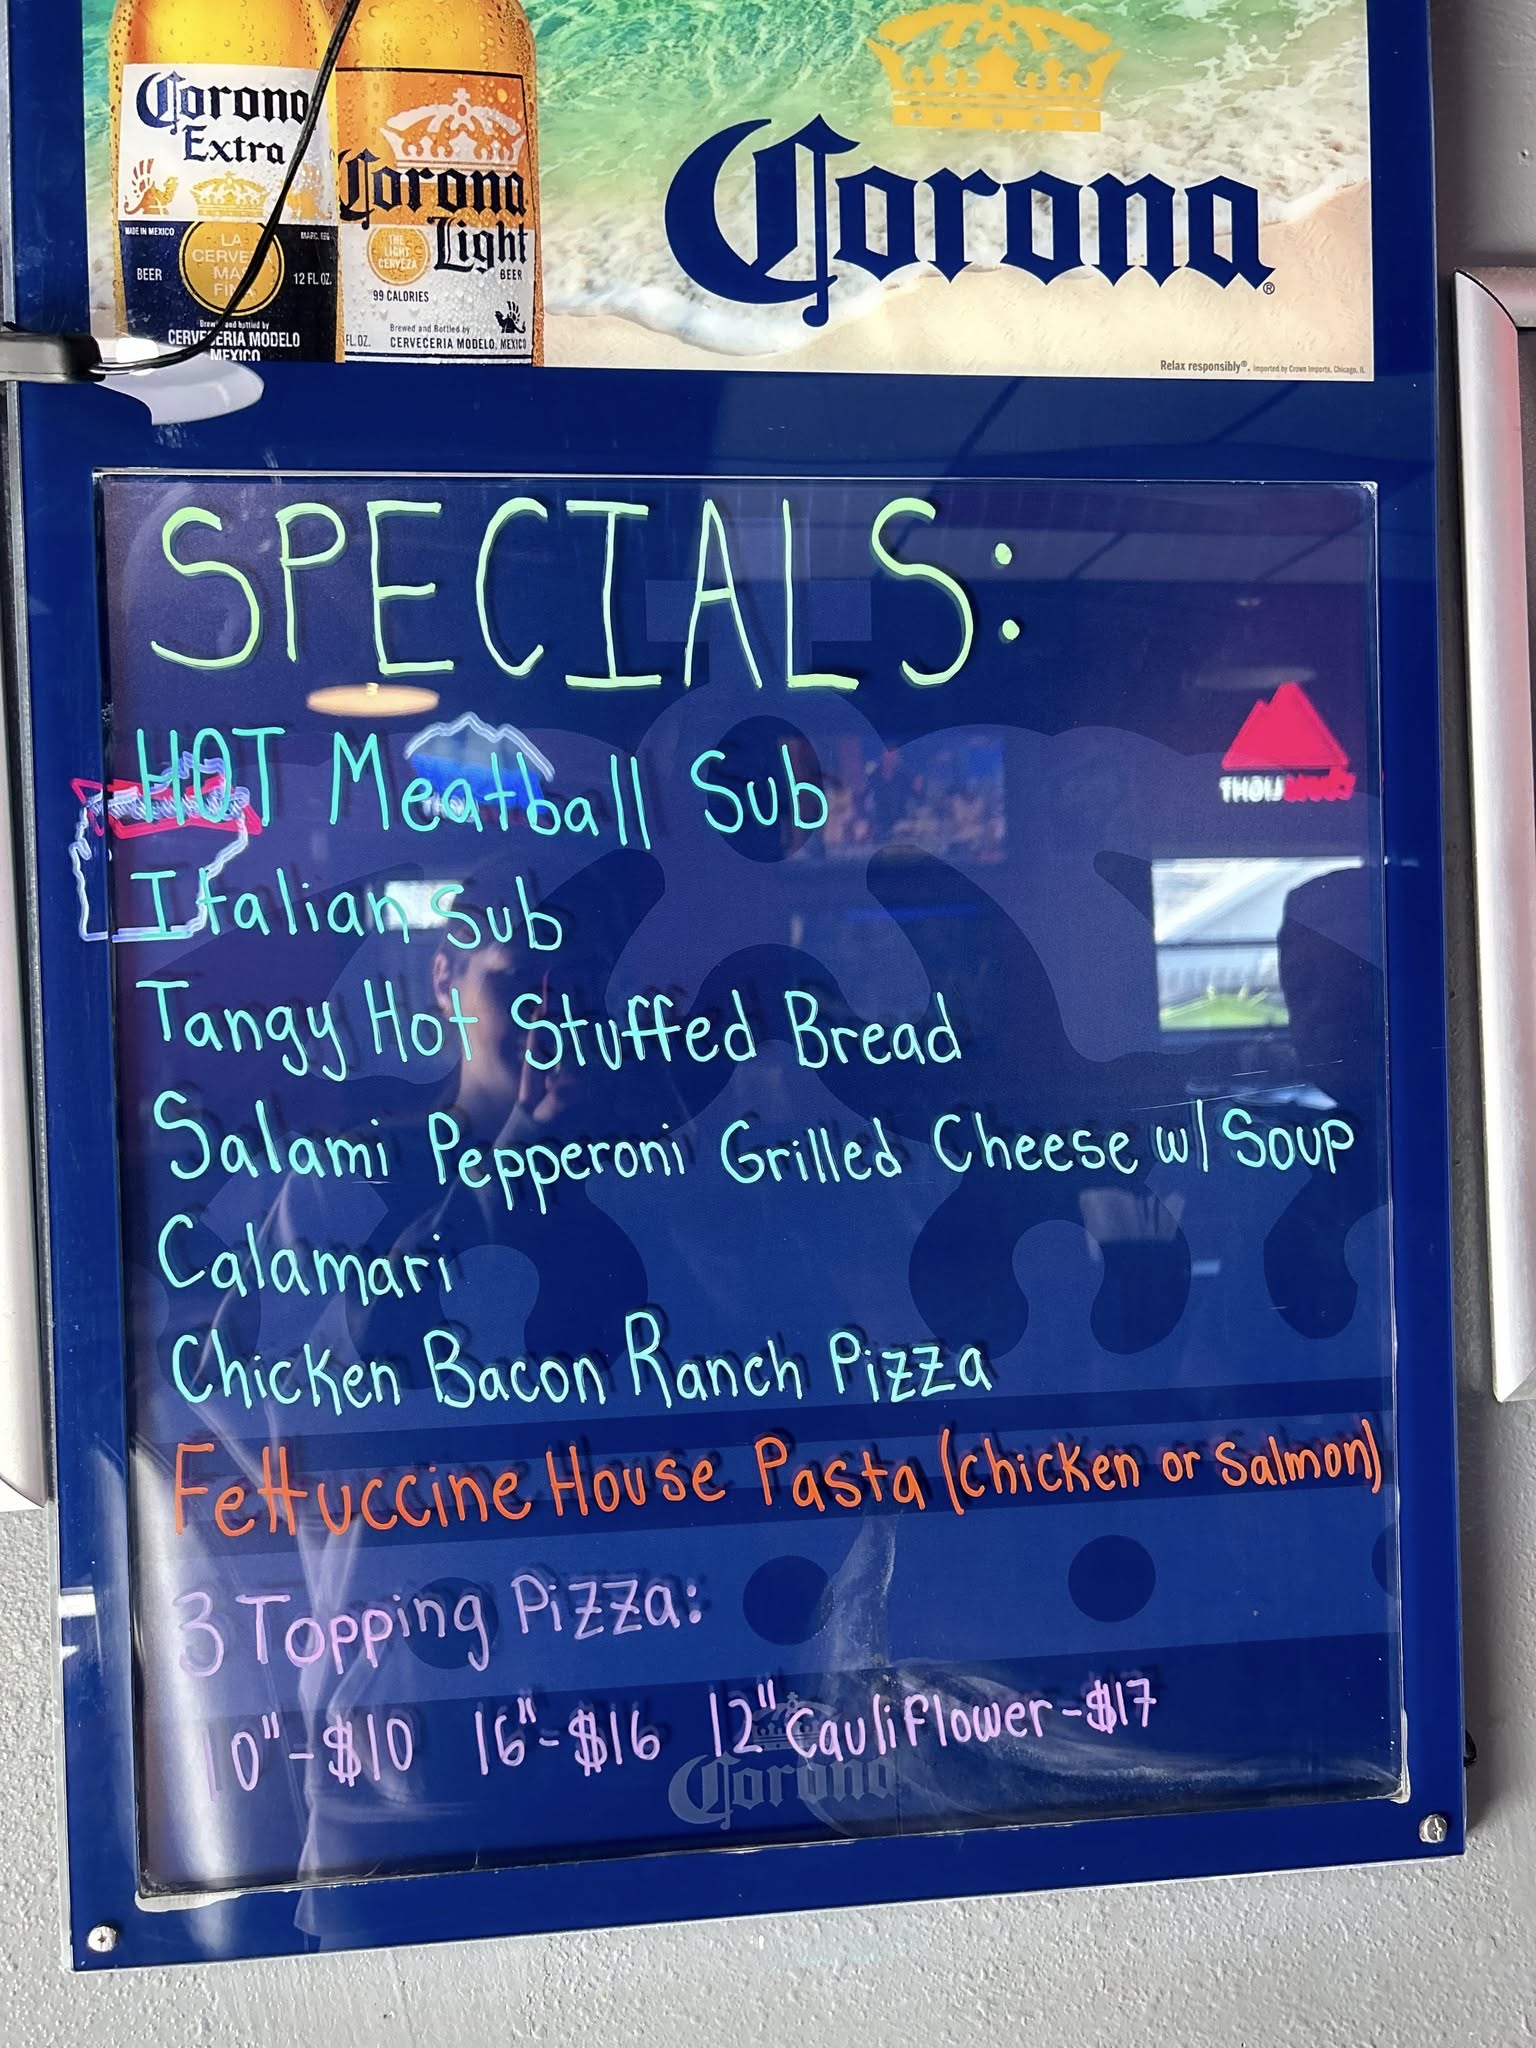 Corona
Extra
MADE IN MEXICO
LA
CERVEZA
MAS
FINA
BEER
12 FL. OZ.
Brewed and bottled by
CERVECERIA MODELO
MEXICO
Corona
Light
BEER
THE
LIGHT
CERVEZA
99 CALORIES
FL. OZ.
Brewed and Bottled by
CERVECERIA MODELO, MEXICO
Corona®
Relax responsibly®. Imported by Crown Imports, Chicago, IL
SPECIALS:
HOT Meatball Sub
Italian Sub
Tangy Hot Stuffed Bread
Salami Pepperoni Grilled Cheese w/ Soup
Calamari
Chicken Bacon Ranch Pizza
Fettuccine House Pasta (chicken or salmon)
3 Topping Pizza:
10"-$10 16"-$16 12" Cauliflower-$17
Corona